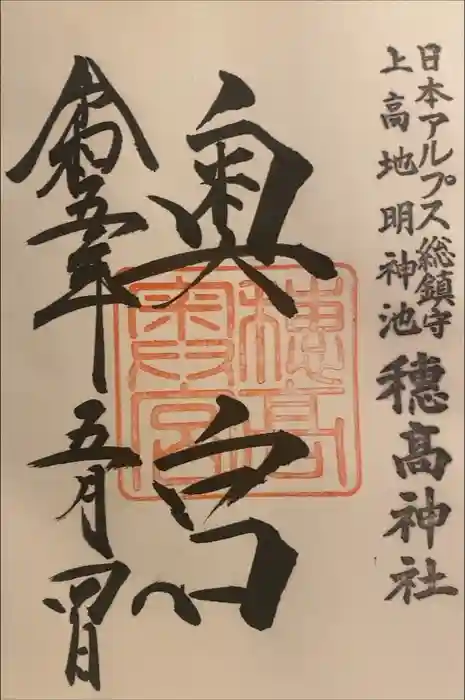 日本アルプス総鎮守
上高地明神池 穂高神社
奥宮
穂高
奥宮
令和五年五月四日